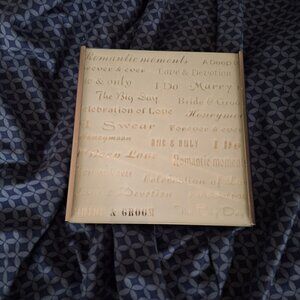 Romantic moments A Deep
Forever & ever Love & Devotion
& only I Do Marry
The Big Day Bride & Groo
elebration of Love Honeymoo
Swear Forever & ever
Honeymoon One & Only I
Love Romantic moment
Celebration of Lo
Devotion
& GROOM The Big Day